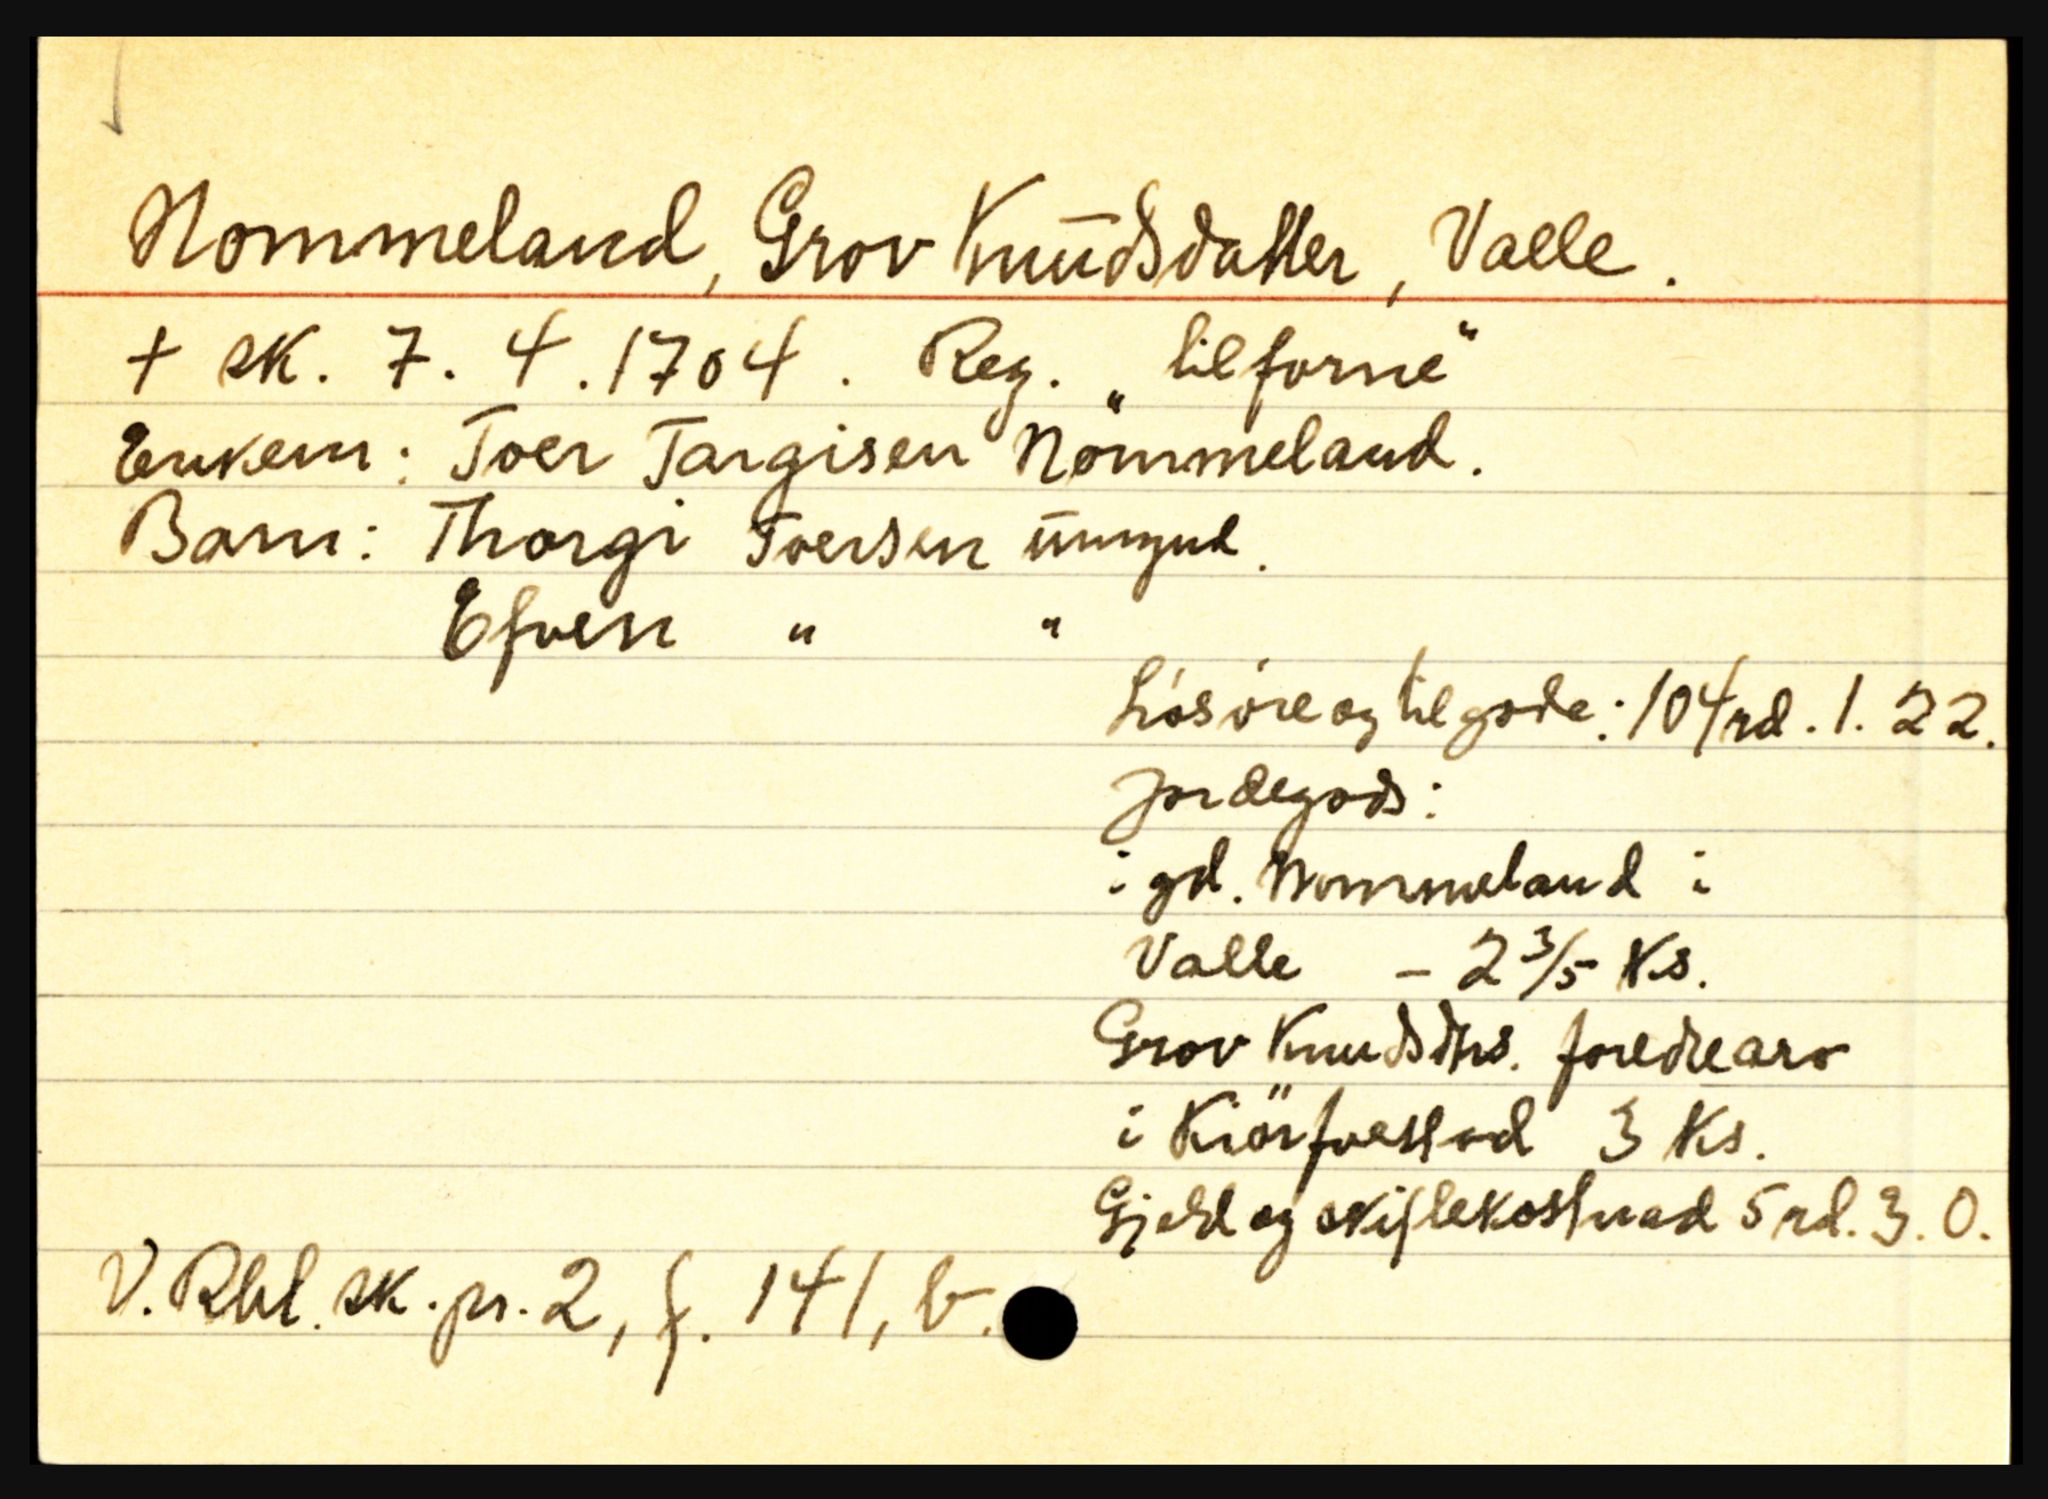 Nommeland, Grov Knudsdatter, Valle.
+ sk. 7. 4. 1704. Reg. „tilforne“
Enkem: Toer Targisen Nömmeland.
Barn: Thorgi Toersen umynd.
Efven " "
Lösöre og tilgode: 104 rd. 1. 22.
Jordegods:
i gd. Nommeland i
Valle - 2 3/5 Ks.
Grov Knudsdtrs. foredrearv
i Kiörfvestad 3 Ks.
Gjeld og skiftekostnad 5 rd. 3. 0.
V. Rbl. sk. pr. 2, f. 141, b.